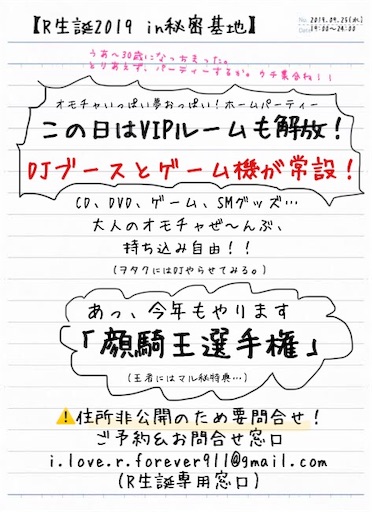 【R生誕2019 in秘密基地】
No. 2019.09.25(水)
Date 19:00〜24:00
うあ〜30歳になっちまった。
とりあえず、パーティーするか。ウチ集合ね!!
オモチャいっぱい夢おっぱい!ホームパーティー
この日はVIPルームも解放!
DJブースとゲーム機が常設!
CD、DVD、ゲーム、SMグッズ…
大人のオモチャぜ〜んぶ、
持ち込み自由!!
(ヲタクにはDJやらせてみる。)
あっ、今年もやります
「顔騎王選手権」
(王者にはマル秘特典…)
⚠住所非公開のため要問合せ!
ご予約&お問合せ窓口
i.love.r.forever911@gmail.com
(R生誕専用窓口)